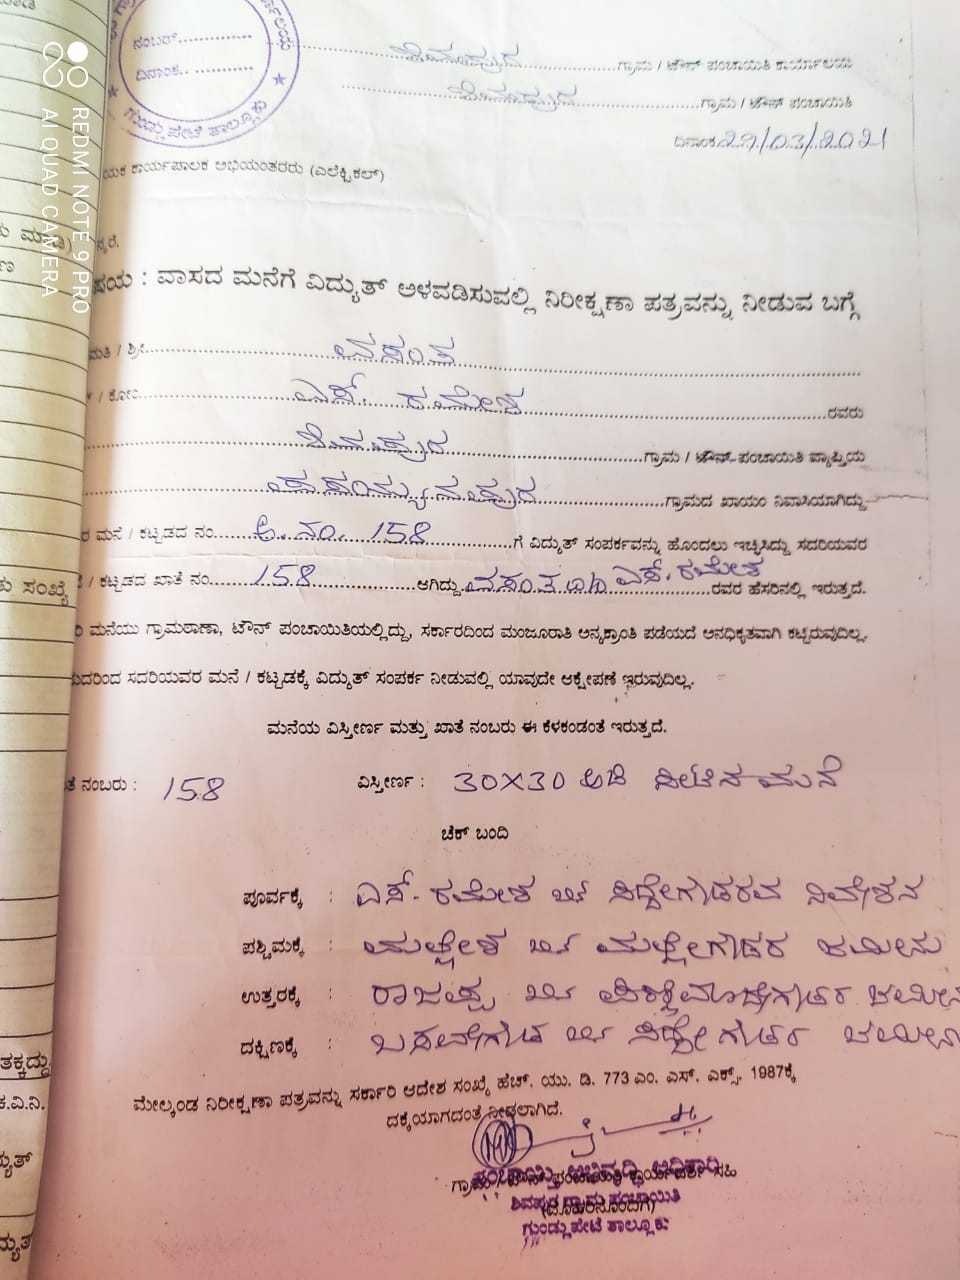 ನಂಬರ್..............
ದಿನಾಂಕ.. ............
ಗುಂಡ್ಲುಪೇಟೆ ತಾಲ್ಲೂಕು
ಶಿವಪುರ ಗ್ರಾಮ / ಟೌನ್ ಪಂಚಾಯಿತಿ ಕಾರ್ಯಾಲಯ
ಶಿವಪುರ ಗ್ರಾಮ / ಟೌನ್ ಪಂಚಾಯಿತಿ
ದಿನಾಂಕ 29/03/2021
ಯಕ ಕಾರ್ಯಪಾಲಕ ಅಭಿಯಂತರರು (ಎಲೆಕ್ಟ್ರಿಕಲ್)
ನ್ಯರೆ,
ಷಯ : ವಾಸದ ಮನೆಗೆ ವಿದ್ಯುತ್ ಅಳವಡಿಸುವಲ್ಲಿ ನಿರೀಕ್ಷಣಾ ಪತ್ರವನ್ನು ನೀಡುವ ಬಗ್ಗೆ
ಮತಿ / ಶ್ರೀ ವಸಂತ
/ ಕೋಂ ಎಸ್. ರಮೇಶ ರವರು
ಶಿವಪುರ ಗ್ರಾಮ / ಟೌನ್ ಪಂಚಾಯಿತಿ ವ್ಯಾಪ್ತಿಯ
ಗ್ರಾಮದ ಖಾಯಂ ನಿವಾಸಿಯಾಗಿದ್ದು
ರ ಮನೆ / ಕಟ್ಟಡದ ನಂ. ಅ. ನಂ. 158 ಗೆ ವಿದ್ಯುತ್ ಸಂಪರ್ಕವನ್ನು ಹೊಂದಲು ಇಚ್ಛಿಸಿದ್ದು ಸದರಿಯವರ
/ ಕಟ್ಟಡದ ಖಾತೆ ನಂ. 158 ಆಗಿದ್ದು ವಸಂತ ಎಸ್. ರಮೇಶ ರವರ ಹೆಸರಿನಲ್ಲಿ ಇರುತ್ತದೆ.
ರಿ ಮನೆಯು ಗ್ರಾಮಠಾಣಾ, ಟೌನ್ ಪಂಚಾಯಿತಿಯಲ್ಲಿದ್ದು, ಸರ್ಕಾರದಿಂದ ಮಂಜೂರಾತಿ ಅನ್ಯಕ್ರಾಂತಿ ಪಡೆಯದೆ ಅನಧಿಕೃತವಾಗಿ ಕಟ್ಟಿರುವುದಿಲ್ಲ.
ುದರಿಂದ ಸದರಿಯವರ ಮನೆ / ಕಟ್ಟಡಕ್ಕೆ ವಿದ್ಯುತ್ ಸಂಪರ್ಕ ನೀಡುವಲ್ಲಿ ಯಾವುದೇ ಆಕ್ಷೇಪಣೆ ಇರುವುದಿಲ್ಲ.
ಮನೆಯ ವಿಸ್ತೀರ್ಣ ಮತ್ತು ಖಾತೆ ನಂಬರು ಈ ಕೆಳಕಂಡಂತೆ ಇರುತ್ತದೆ.
ತೆ ನಂಬರು : 158 ವಿಸ್ತೀರ್ಣ : 30X30 ಅಡಿ ಶೀಟಿನ ಮನೆ
ಚೆಕ್ ಬಂದಿ
ಪೂರ್ವಕ್ಕೆ : ಎಸ್. ರಮೇಶ ಬಿನ್ ಸಿದ್ದೇಗೌಡರವ ನಿವೇಶನ
ಪಶ್ಚಿಮಕ್ಕೆ : ಮಲ್ಲೇಶ ಬಿನ್ ಮಲ್ಲೇಗೌಡರ ಜಮೀನು
ಉತ್ತರಕ್ಕೆ : ರಾಜಪ್ಪ ಬಿನ್ ಜಮೀನ
ದಕ್ಷಿಣಕ್ಕೆ : ಬಸವೇಗೌಡ ಬಿನ್ ಸಿದ್ದೇಗೌಡರ ಜಮೀನು
ಮೇಲ್ಕಂಡ ನಿರೀಕ್ಷಣಾ ಪತ್ರವನ್ನು ಸರ್ಕಾರಿ ಆದೇಶ ಸಂಖ್ಯೆ ಹೆಚ್. ಯು. ಡಿ. 773 ಎಂ. ಎಸ್. ಎಕ್ಸ್. 1987ಕ್ಕೆ
ದಕ್ಕೆಯಾಗದಂತೆ ನೀಡಲಾಗಿದೆ.
ಪಂಚಾಯ್ತಿ ಅಭಿವೃದ್ಧಿ ಅಧಿಕಾರಿ
ಗ್ರಾಮ / ಟೌನ್ ಪಂಚಾಯಿತಿ ಕಾರ್ಯದರ್ಶಿ ಸಹಿ
ಶಿವಪುರ ಗ್ರಾಮ ಪಂಚಾಯಿತಿ
(ಮೊಹರಿನೊಂದಿಗೆ)
ಗುಂಡ್ಲುಪೇಟೆ ತಾಲ್ಲೂಕು
REDMI NOTE 9 PRO
AI QUAD CAMERA
ು ಸಂಖ್ಯೆ
ತಕ್ಕದ್ದು
ಕ.ವಿ.ನಿ.